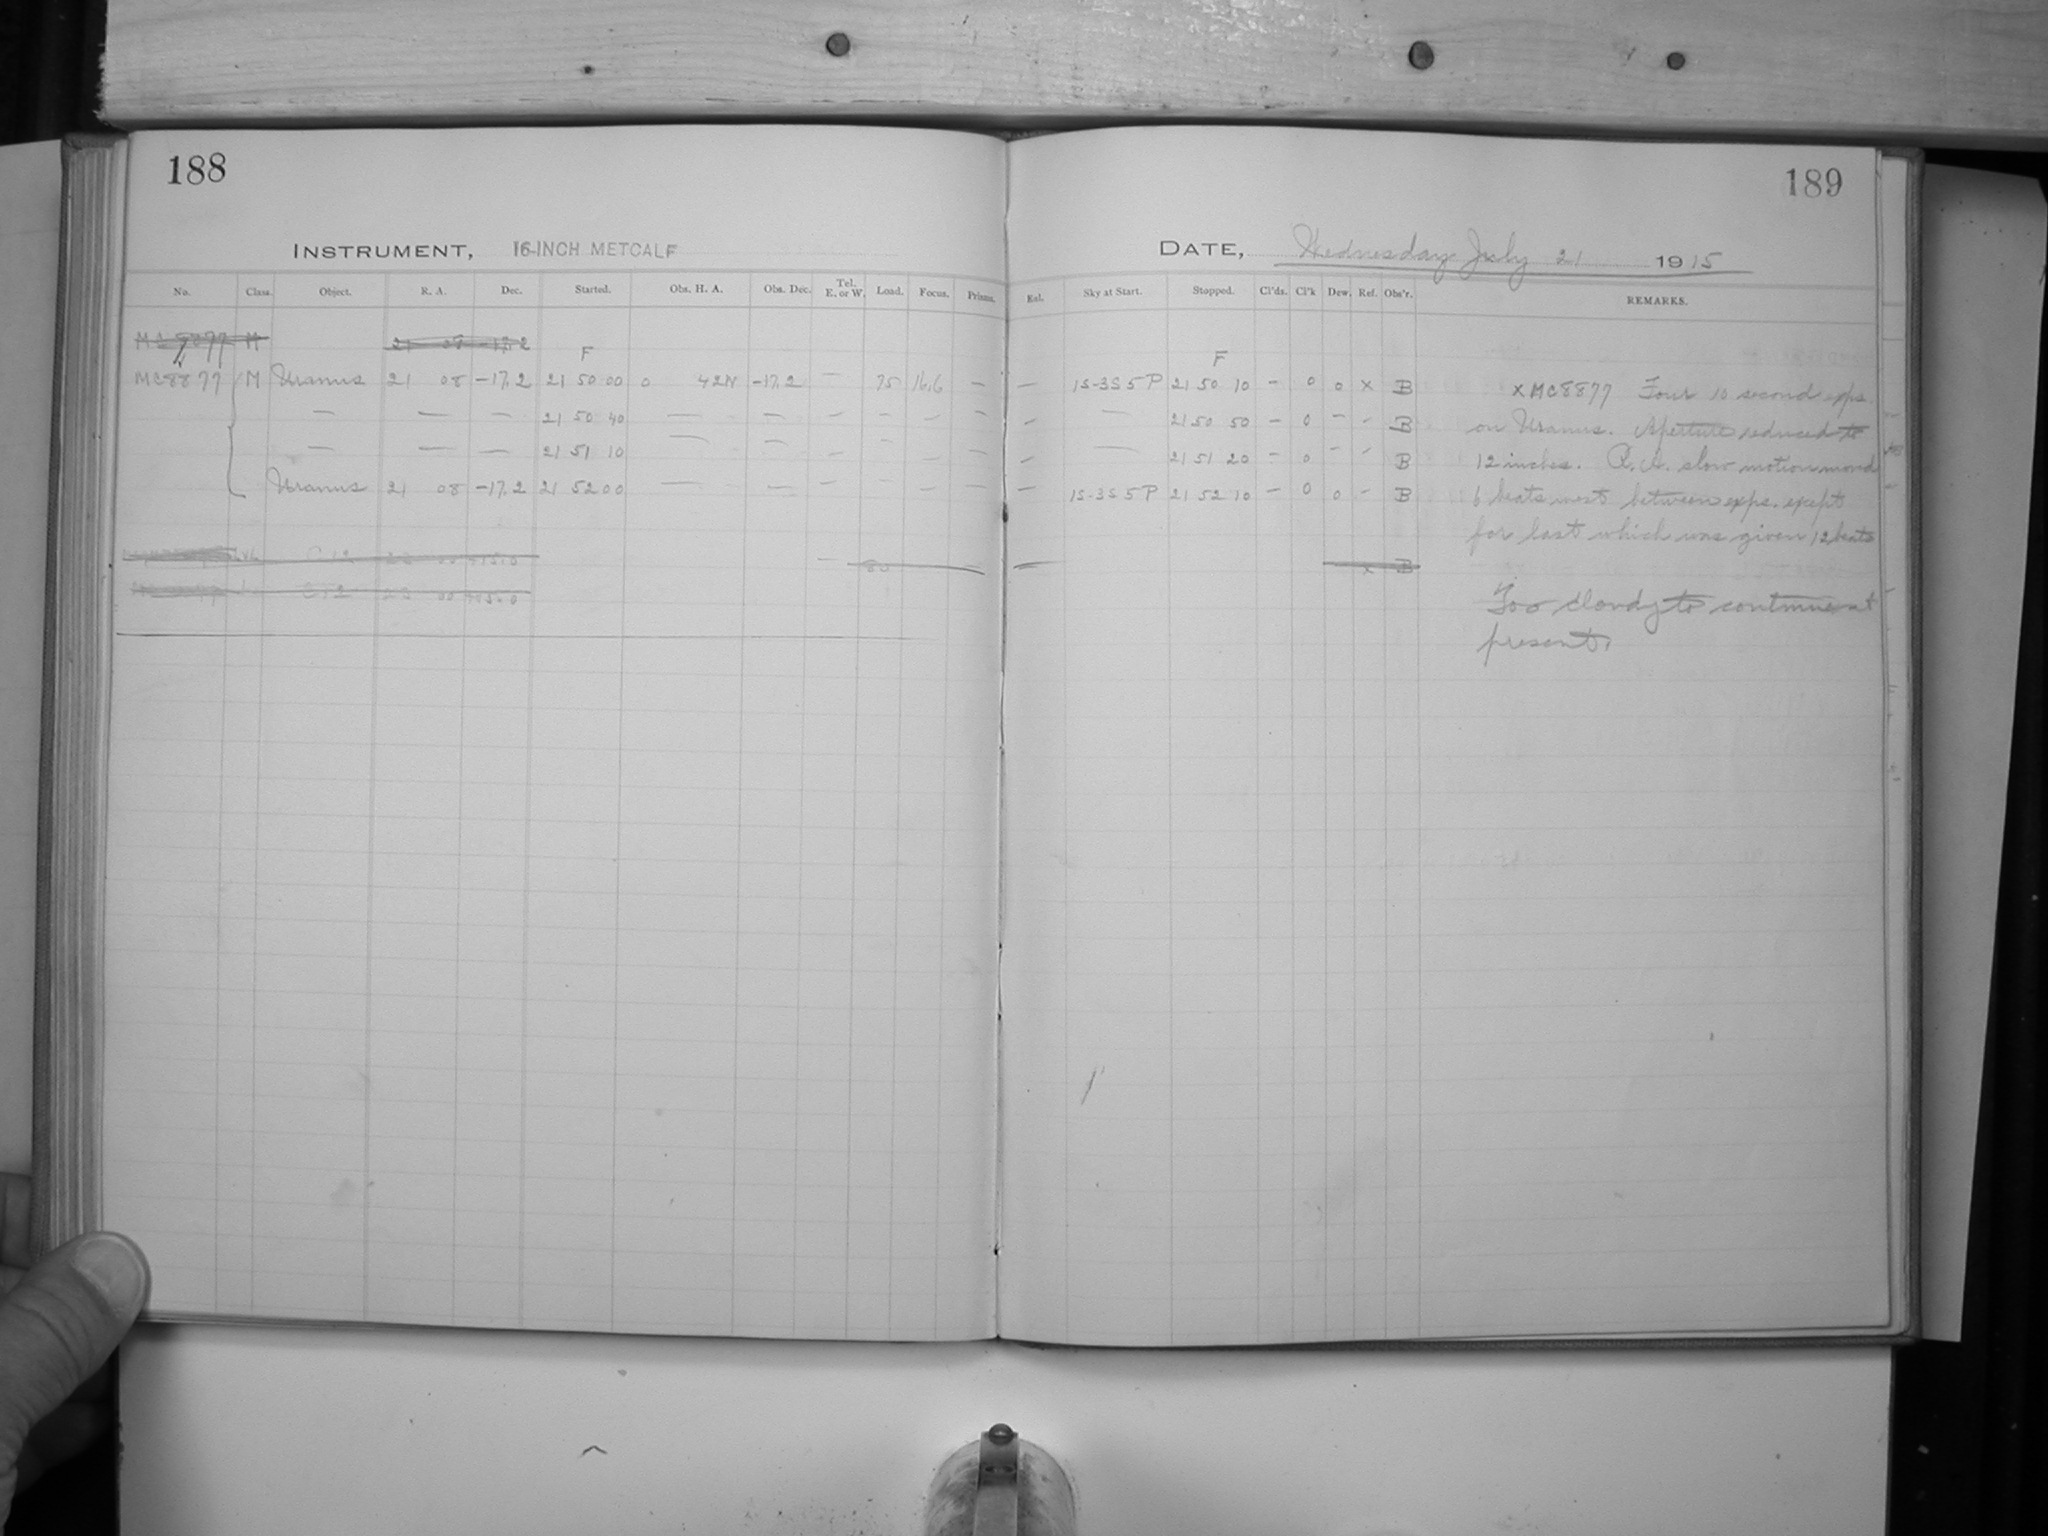 188
189
INSTRUMENT, 16-INCH METCALF
DATE, Wednesday July 21 1915
No. Class. Object. R. A. Dec. Started. Obs. H. A. Obs. Dec. Tel. E. or W. Load. Focus. Prisms. Enl. Sky at Start. Stopped. Cl'ds. Cl'k Dew. Ref. Obs'r. REMARKS.
21 08 -17.2
F F
MC8877 M Uranus 21 08 -17.2 21 50 00 0 42W -17.2 — 75 16.6 — — 1S-3S 5 P 21 50 10 - 0 0 x B
— — — 21 50 40 — — — — — — — — 21 50 50 - 0 - - B
— — — 21 51 10 — — — — — — — — 21 51 20 - 0 - - B
Uranus 21 08 -17.2 21 52 00 — — — — — — — 1S-3S 5 P 21 52 10 - 0 0 - B
C 12
80 — — x B
C 12
x MC8877 Four 10 second exps.
on Uranus. Aperture reduced to
12 inches. R. A. slow motion moved
6 beats west between exps. except
for last which was given 12 beats
Too cloudy to continue at
present.